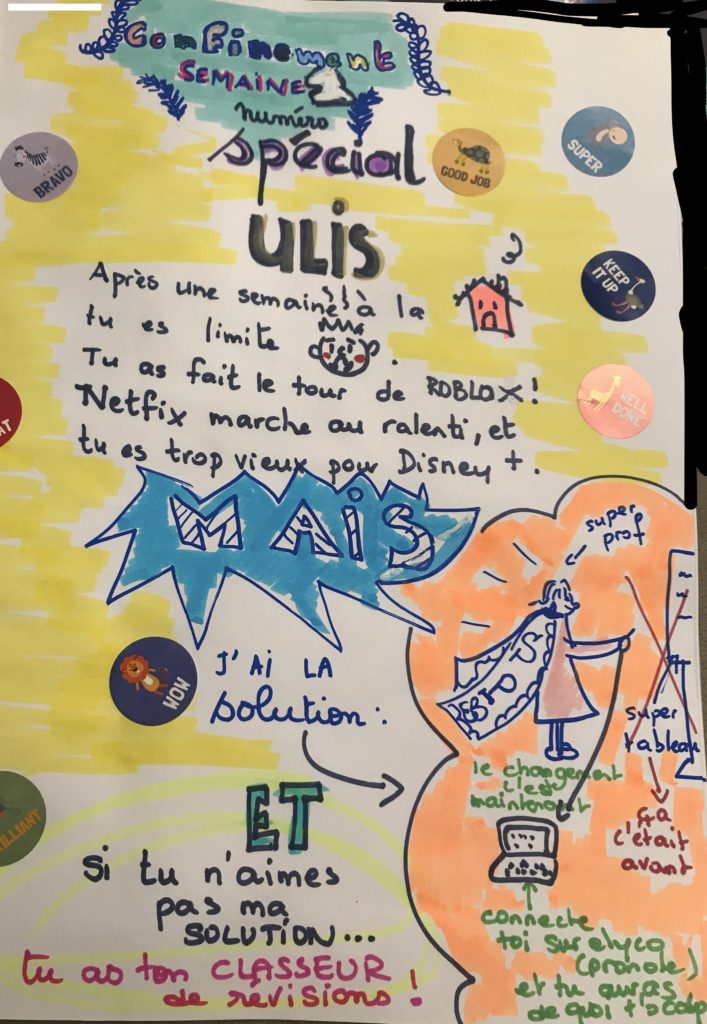 Confinement
SEMAINE 2
numéro
spécial
ULIS
BRAVO
GOOD JOB
SUPER
KEEP
IT UP
WELL
DONE
Après une semaine à la
tu es limite .
Tu as fait le tour de ROBLOX!
Netfix marche au ralenti, et
tu es trop vieux pour Disney +.
MAIS
WOW
J'AI LA
solution:
super
prof
super
tableau
le changement
c'est
maintenant
ça
c'était
avant
connecte
toi sur elyco
(pronote)
et tu auras
de quoi t'
ET
Si tu n'aimes
pas ma
SOLUTION...
tu as ton CLASSEUR
de révisions !